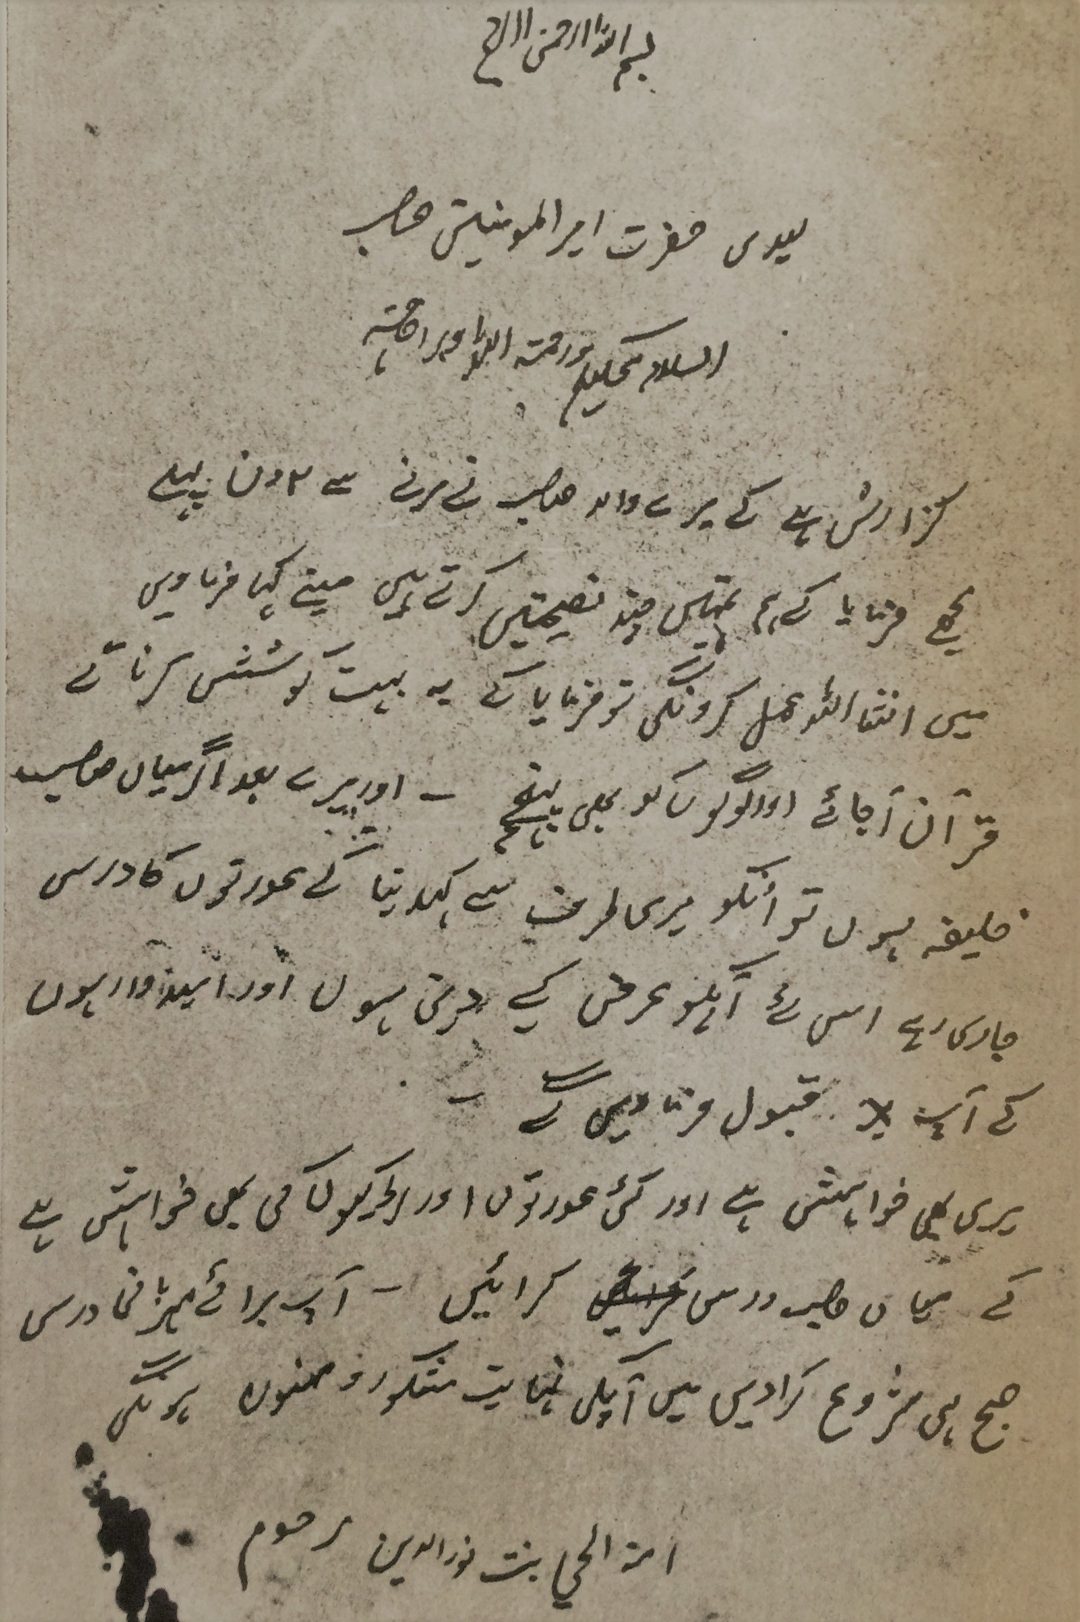 بسم اللہ الرحمن الرحیم
سیدی حضرت امیر المومنین صاحب
السلام علیکم ورحمتہ اللہ وبراکاتہ
گزارش ہے کے میرے والد صاحب نے مرنے سے ۲ دن پہلے
مجھے فرمایا کے ہم تمہیں چند نصیحتیں کرتے ہیں مینے کہا فرماویں
میں انشااللہ عمل کرونگی تو فرمایا کے یہ بہت کوشش کرنا کے
قرآن آجائے اور لوگوں کو بھی پہنچے - اور میرے بعد اگر میاں صاحب
خلیفہ ہوں تو انکو میری طرف سے کہدینا کے عورتوں کا درس
جاری رہے اس لئے آپکو عرض کیے دیتی ہوں اور امیدوار ہوں
کے آپ قبول فرماویں گے -
میری بھی خواہش ہے اور کئی عورتوں اور لڑکیوں کی بھی خواہش ہے
کے میاں صاحب درس کرائیں - آپ برائے مہربانی درس
صبح ہی شروع کرادیں میں آپکی نہایت مشکور و ممنون ہونگی
امۃ الحی بنت نورالدین مرحوم